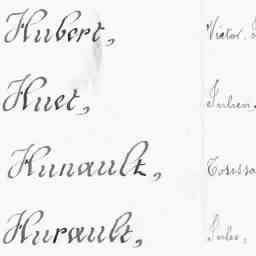 Hubert, Victor
Huet, Julien
Hunault,
Hurault, Jules,